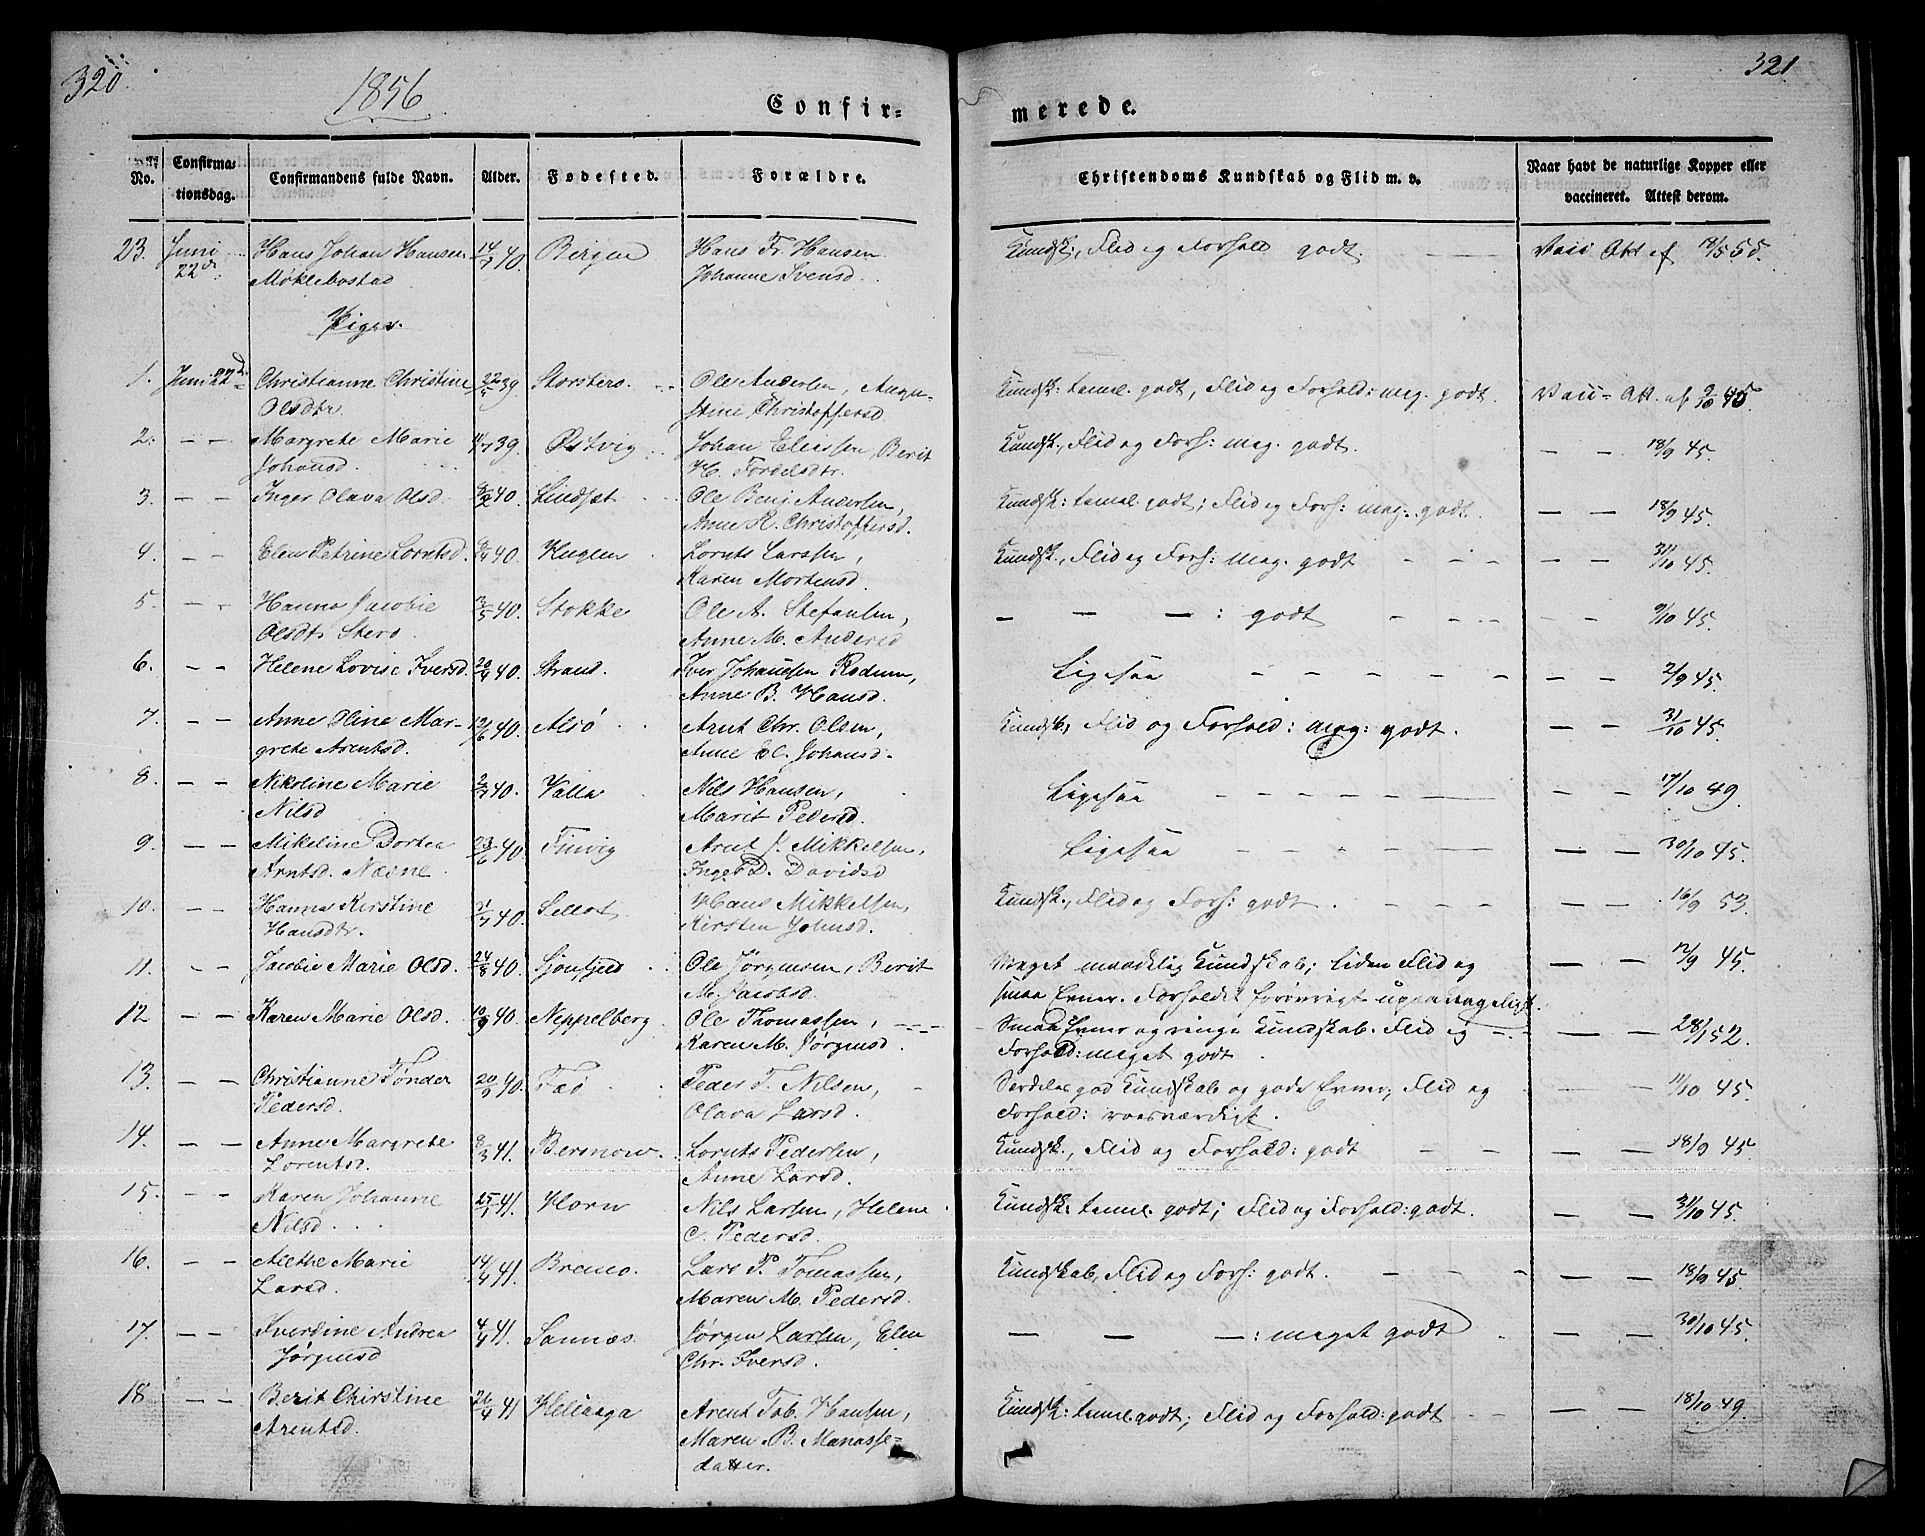 320.
1856
Confir-
merede.
321
No.
Confirma-
tionsdag.
Confirmandens fulde Navn.
Alder.
Fødested.
Forældre.
Christendoms Kundskab og Flid m. v.
Naar havt de naturlige Kopper eller
vaccineret. Attest derom.
23. Juni Hans Johan Hansen 14/7 40 Bergen Hans Fr. Hansen Kundsk., Flid og Forhold godt. Vacc Att af 18/5 55.
22d Møklebostad Johanne Svensd.
Piger.
1. Juni 22d Christianne Christine 39. Storstero. Ole Andersen, Augu- Kundsk: temel. godt, Flid og Forhold: meg. godt. Vacc- Att. af 9/10 45
Olsdtr. stine Christoffersd
2. — — Margrete Marie 11/7 39. Østvig Johan Eliassen, Berit Kundsk., Flid og Forh: meg. godt. — — 18/9 45.
Johansd. H. Tordelsdtr.
3. — — Inger Olava Olsd. 40. Lindset Ole Benj Andersen, Kundsk: temel. godt; Flid og Forh: meg. godt. — — 18/9 45.
Anne K. Christoffersd.
4. — Elen Petrine Lorntsd. 40 Kuglen Lornts Larssen, Kundsk., Flid og Forh: meg. godt — — 31/10 45.
Karen Mortensd.
5. — — Hanna Jacobie 3/5 40. Stokke Ole A. Stefansen, — — —: godt — — 9/10 45.
Olsdtr Stero. Anne M. Andersd
6. — — Helene Lovise Iversd. 40. Strand. Iver Johansen Rodum, Ligesaa — — 2/9 45.
Anne B. Hansd.
7. — — Anne Oline Mar- 12/6 40. Alsö Arnt Chr. Olsen, Kundsk, Flid og Forhold: meg: godt. — — 31/10 45.
grete Arentsd. Anne El. Johansd.
8. — — Nikoline Marie 2/7 40. Valla Nils Hansen, Ligesaa — — 17/10 49.
Nilsd Marit Pedersd.
9. — — Mikeline Dortea 23/6 40 Finvig Arnt J. Mikkelsen, Ligesaa — — 30/10 45.
Arntsd. Næsne. Inger D. Davidsd
10. — — Hanna Kirstine 40. Sellot Hans Mikkelsen, Kundsk., Flid og Forh: godt. — — 16/9 53.
Hansdtr. Kirsten Johnsd.
11. — — Jacobie Marie Olsd. 24/8 40. Sjonfjed Ole Jørgensen, Berit Meget maadelig Kundskab; liden Flid og — — 12/9 45.
M. Jacobsd. smaa Evner. Forholdet forøvrigt upaaklageligt.
12 — — Karen Marie Olsd. 10/9 40. Neppelberg. Ole Thomassen, Smaa Evner og ringe Kundskab. Flid og — — 28/1 52.
Karen M. Jørgensd. Forhold: meget godt.
13. — — Christianne Tønder 20/9 40. Faö Peder T. Nilsen, Serdeles god Kundskab og gode Evner; Flid og — 11/10 45.
Pedersd. Olava Larsd. Forhold: roesværdigt.
14. — — Anne Margrete 8/3 41. Bersnow. Lornts Pedersen, Kundsk., Flid og Forhold: godt — — 18/9 45.
Lorentsd. Anne Larsd.
15. — — Karen Johanne 25/1 41. Horn Nils Larsen, Helene Kundsk: temel. godt; Flid og Forhold: godt. — — 31/10 45.
Nilsd. C. Pedersd.
16. — — Alethe Marie 14/4 41. Bremo. Lars P. Tomassen, Kundskab, Flid og Forh: godt. — — 18/9 45.
Larsd. Maren M. Pedersd.
17. — — Iverdine Andrea 4/4 41. Sannæs. Jørgen Larsen, Elen — — —: meget godt — — 30/10 45.
Jørgensd Chr. Iversd.
18 — — Berit Chirstine 26/4 41 Hellaaga Arent Tob. Hansen, Kundsk: temel. godt; Flid og Forhold: godt — — 18/10 49.
Arentsd. Maren B. Manasse-
datter.